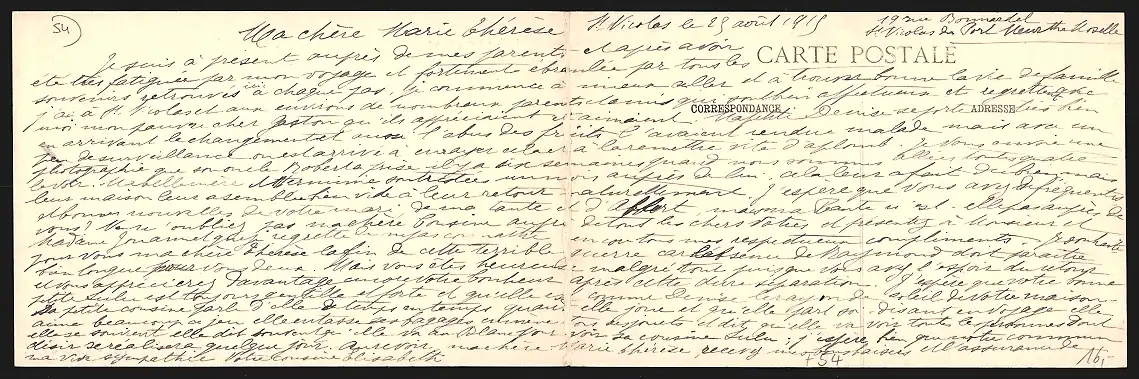 54
Ma chère Marie Thérèse St Nicolas le 25 août 1915 19 rue Bonnardel
St Nicolas du Port Meurthe Moselle
CARTE POSTALE
CORRESPONDANCE ADRESSE
Je suis à présent auprès de mes parents et après avoir
été très fatiguée par mon voyage et fortement ébranlée par tous les
souvenirs retrouvés ici à chaque pas, je commence à mieux aller et à trouver bonne la vie de famille
j'ai à St Nicolas et aux environs de nombreux parents affectueux et regrettent avec
moi mon pauvre cher Gaston qu'ils appréciaient et aimaient Denise se porte très bien
en arrivant le changement et aussi l'abus des fruits l'avaient rendue malade mais avec un
peu de surveillance on est arrivé à enrayer cela et à la remettre vite d'aplomb. Je vous envoie une
photographie que son oncle Robert a prise il y a six semaines quand nous sommes allées
le voir. Ma belle-mère et Germaine ont passé un mois auprès de lui, cela leur a fait du bien, mais
leur maison leur a semblé bien vide à leur retour naturellement J'espère que vous avez fréquentes
et bonnes nouvelles de votre mari, de ma tante et d'Albert, ma bonne Tante est-elle auprès de
vous? Ne m'oubliez pas ma chère cousine auprès de tous les chers vôtres et présentez à Monsieur et
Madame encore tous mes respectueux compliments. Je souhaite
pour vous ma chère Thérèse la fin de cette terrible guerre car l'absence de Raymond doit paraître
bien longue pour vous deux. Mais vous êtes heureuse malgré tout puisque vous avez l'espoir du retour
et vous apprécierez davantage encore votre bonheur après cette dure séparation. J'espère que votre bonne
petite Lulu est toujours gentille et forte et qu'elle est comme Denise le rayon de soleil de votre maison.
Sa petite cousine parle d'elle de temps en temps quand elle joue et qu'elle part soi-disant en voyage elle
aime beaucoup ce jeu, elle entasse des bagages emmène tous ses jouets et dit qu'elle va voir toutes les personnes dont
elle se souvient elle dit souvent qu'elle va en voir sa cousine Lulu; j'espère bien que notre commun
désir se réalisera quelque jour. Au revoir, ma chère Marie Thérèse recevez mes baisers et l'assurance de
ma vive sympathie Votre cousine Elisabeth
+54
16,-